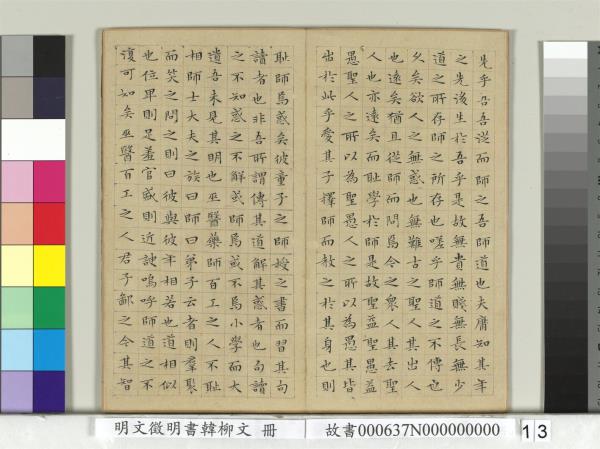 先乎吾吾從而師之吾師道也夫庸知其年
之先後生於吾乎是故無貴無賤無長無少
道之所存師之所存也嗟乎師道之不傳也
久矣欲人之無惑也無難古之聖人其出人
也遠矣猶且從師而問焉今之衆人其去聖
人也亦遠矣而恥學於師是故聖益聖愚益
愚聖人之所以為聖愚人之所以為愚其皆
出於此乎愛其子擇師而教之於其身也則
恥師焉惑矣彼童子之師授之書而習其句
讀者也非吾所謂傳其道解其惑者也句讀
之不知惑之不解或師焉或不焉小學而大
遺吾未見其明也巫醫藥師百工之人不恥
相師士大夫之族曰師曰弟子云者則羣聚
而笑之問之則曰彼與彼年相若也道相似
也位卑則足羞官盛則近諛嗚呼師道之不
復可知矣巫醫百工之人君子鄙之今其智
明文徵明書韓柳文 冊
故書000637N000000000
13